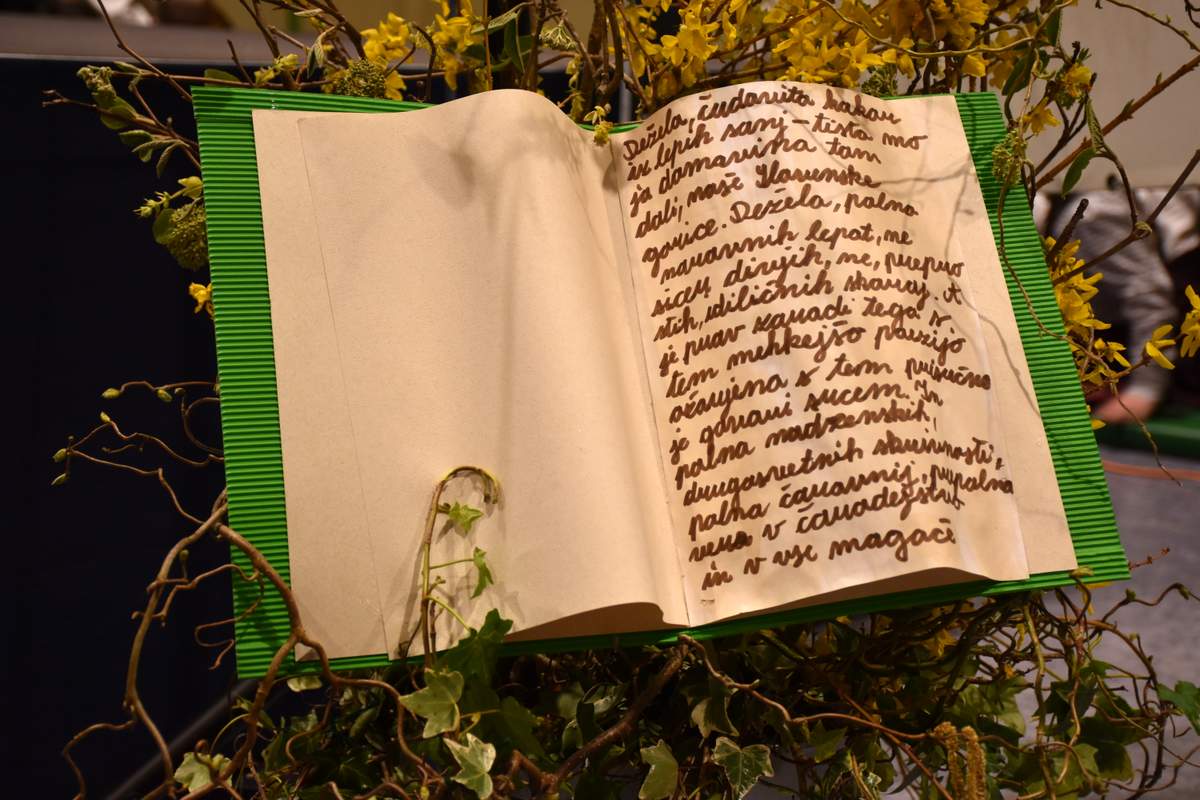 Dežela, čudovita kakor
iz lepih sanj – tista mo
ja domovina tam
doli, naše Slovenske
gorice. Dežela, polna
naravnih lepot, ne
sicer divjih, ne, prepro
stih, idiličnih skoraj. A
je prav zaradi tega s
tem mehkejšo poezijo
ožarjena s tem prisrčno
je govori srcem. In
polna nadzemskih,
drugosvetnih skrivnosti,
polna čarovnij, prepolna
vere v čarodejstvo
in v vse mogoče